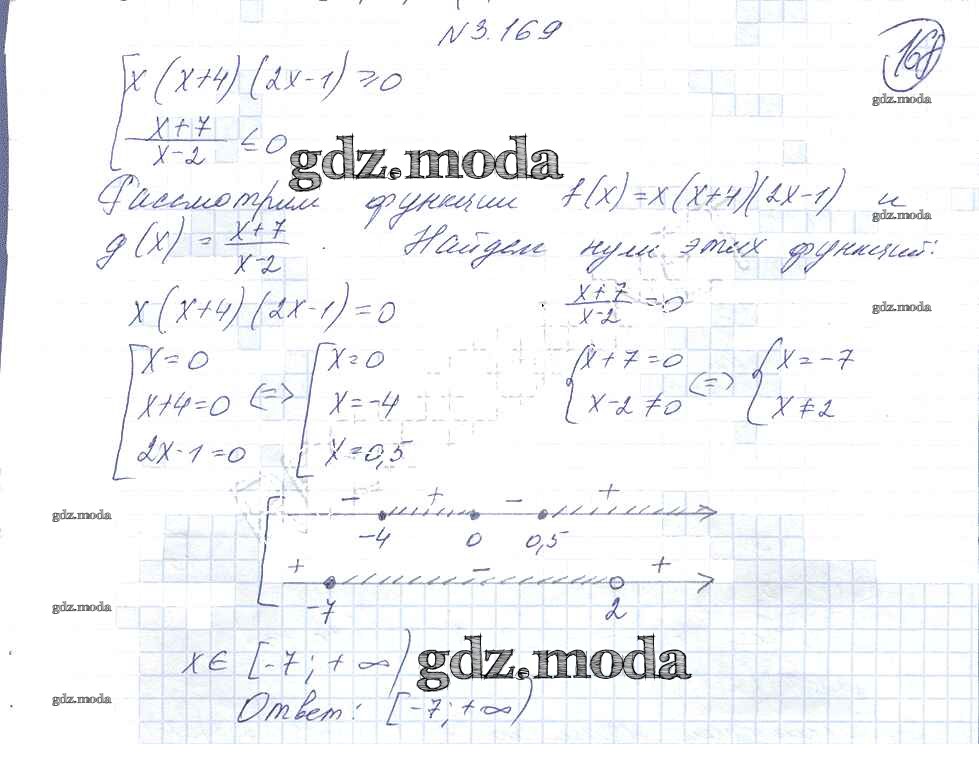 N 3.169
168
gdz.moda
[ x(x+4)(2x-1) ≥ 0
(x+7)/(x-2) ≤ 0
gdz.moda
Рассмотрим функции f(x)=x(x+4)(2x-1) и
gdz.moda
g(x) = (x+7)/(x-2). Найдем нули этих функций:
x(x+4)(2x-1)=0 (x+7)/(x-2)=0
gdz.moda
[ x=0 [ x=0 { x+7=0 { x=-7
x+4=0 <=> x=-4 x-2≠0 <=> x≠2
2x-1=0 x=0,5
gdz.moda
- + - +
-4 0 0,5
+ - +
gdz.moda
-7 2
x∈ [-7; +∞)
gdz.moda
gdz.moda
Ответ: [-7; +∞)